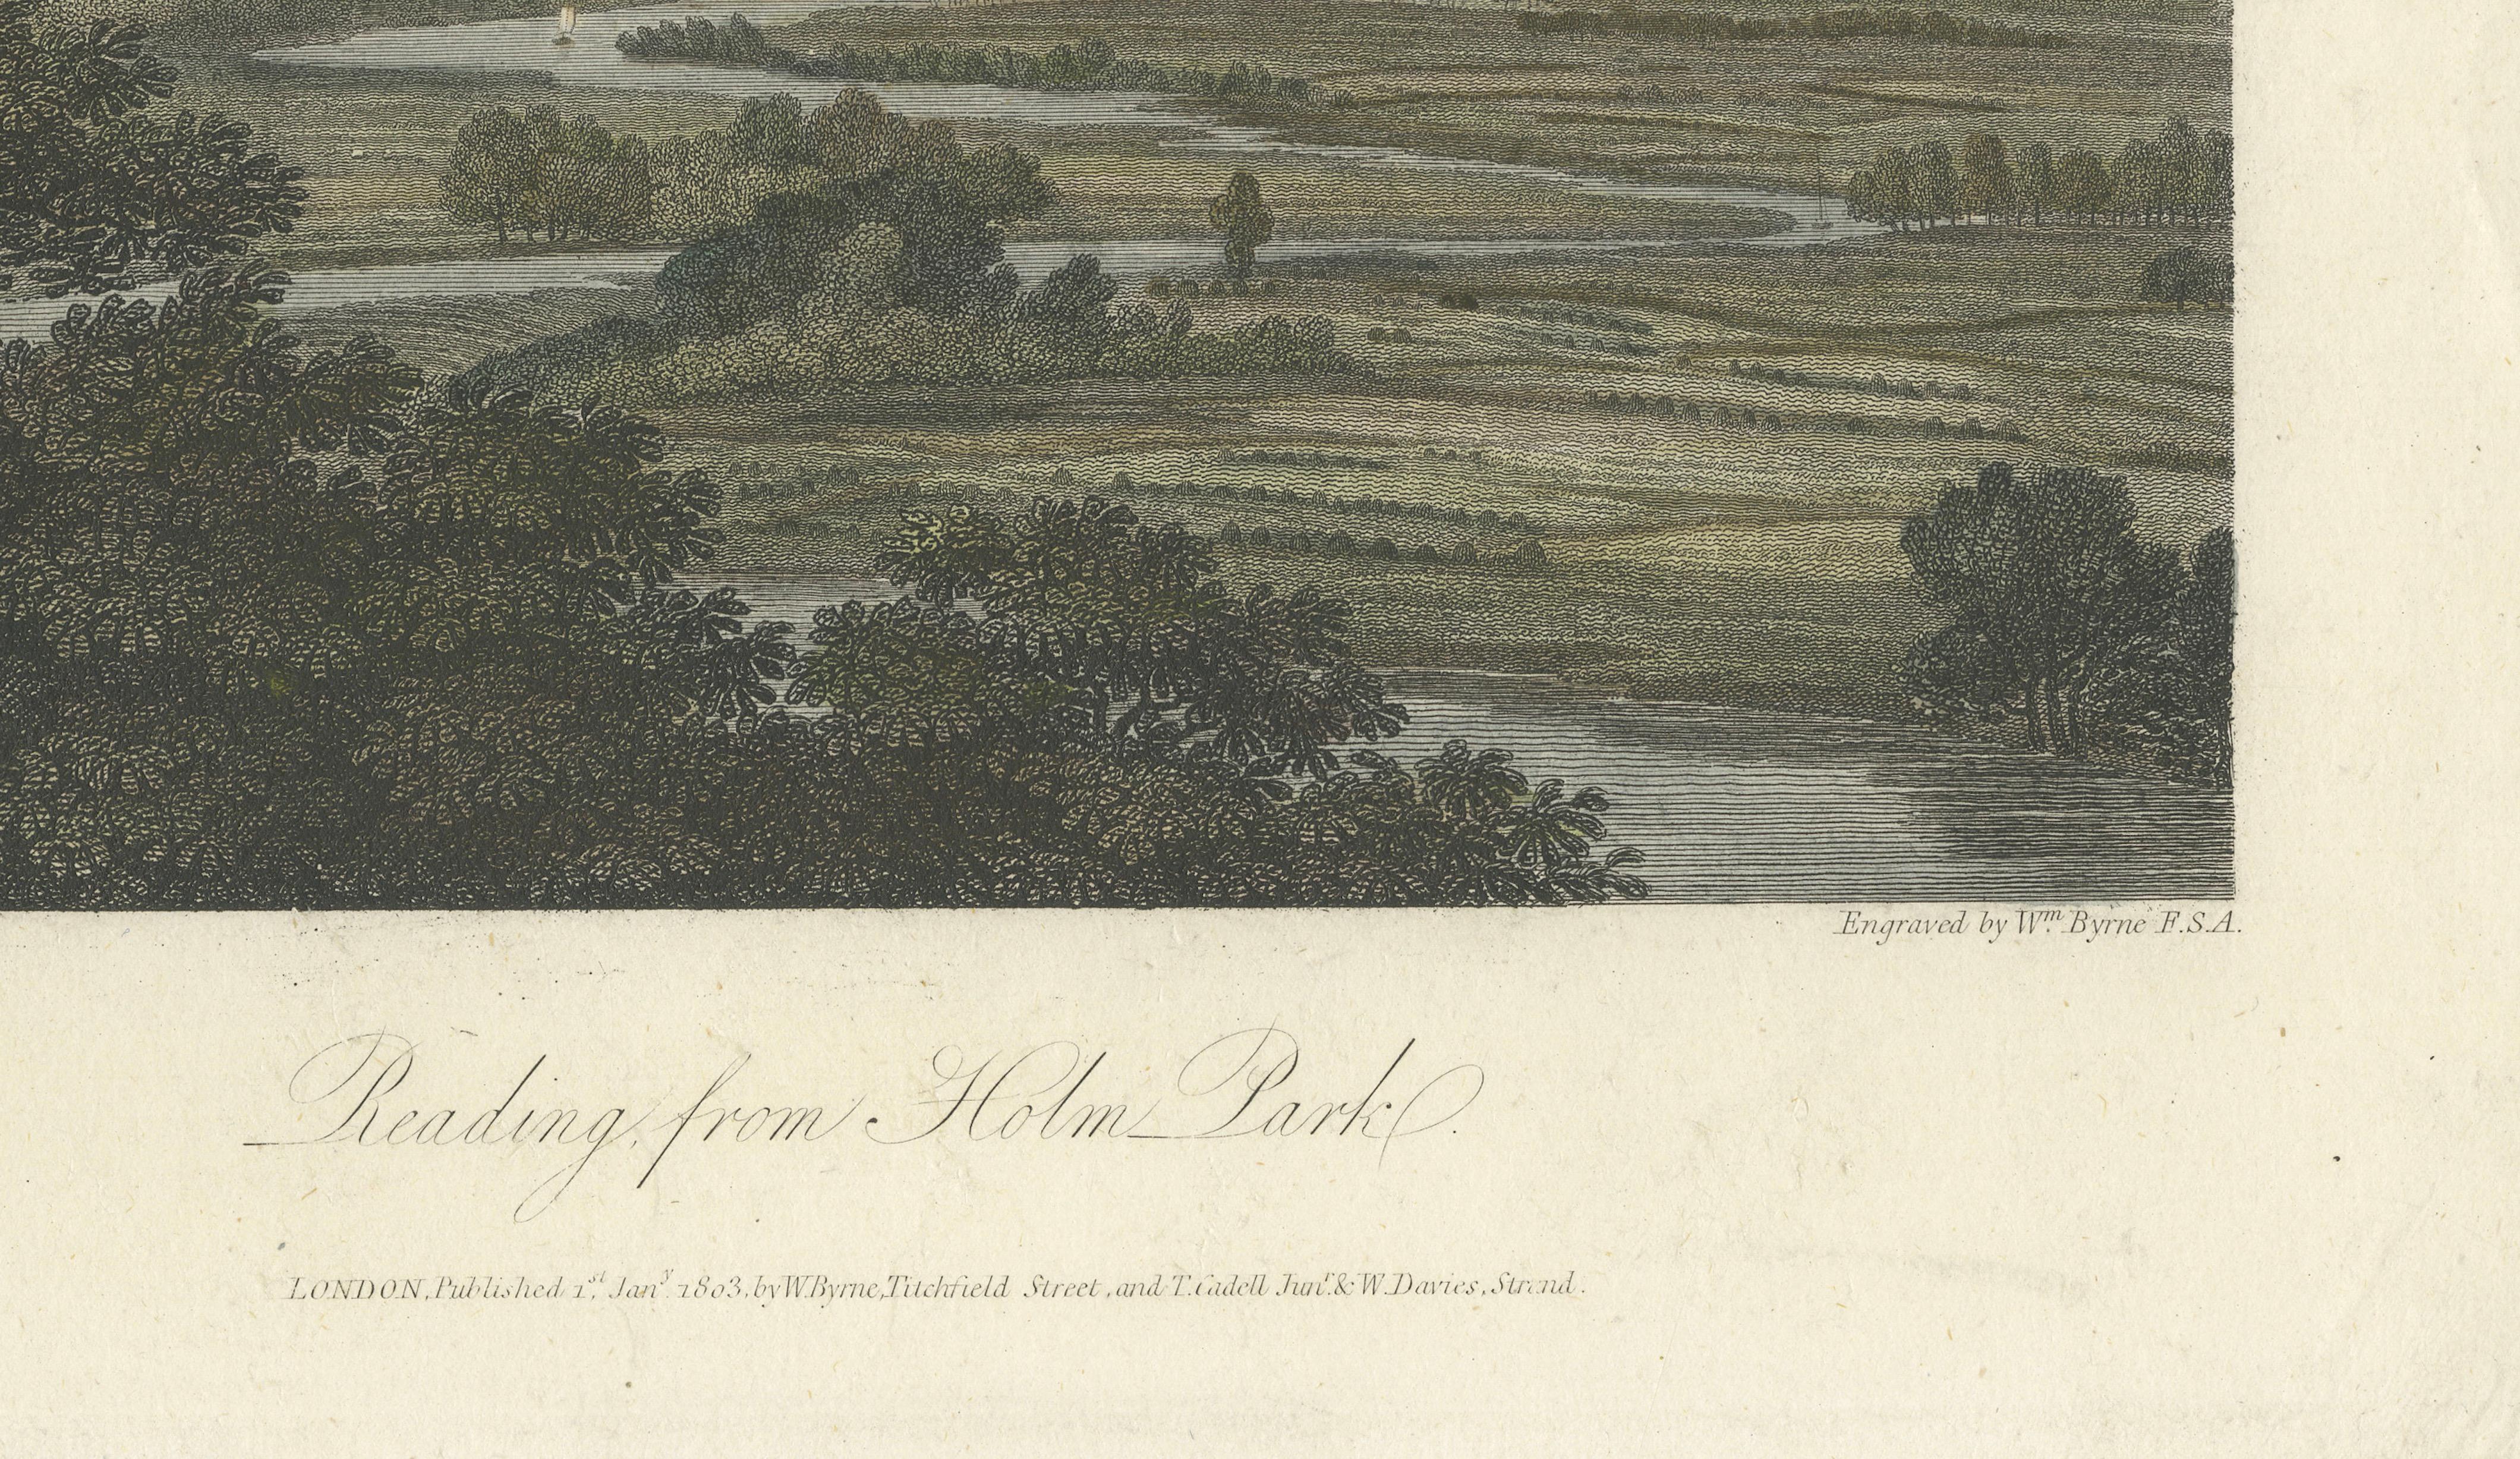 Engraved by Wm. Byrne F.S.A.
Reading, from Holm Park.
LONDON, Published 1st. Jany. 1803, by W. Byrne, Titchfield Street, and T. Cadell Junr. & W. Davies, Strand.